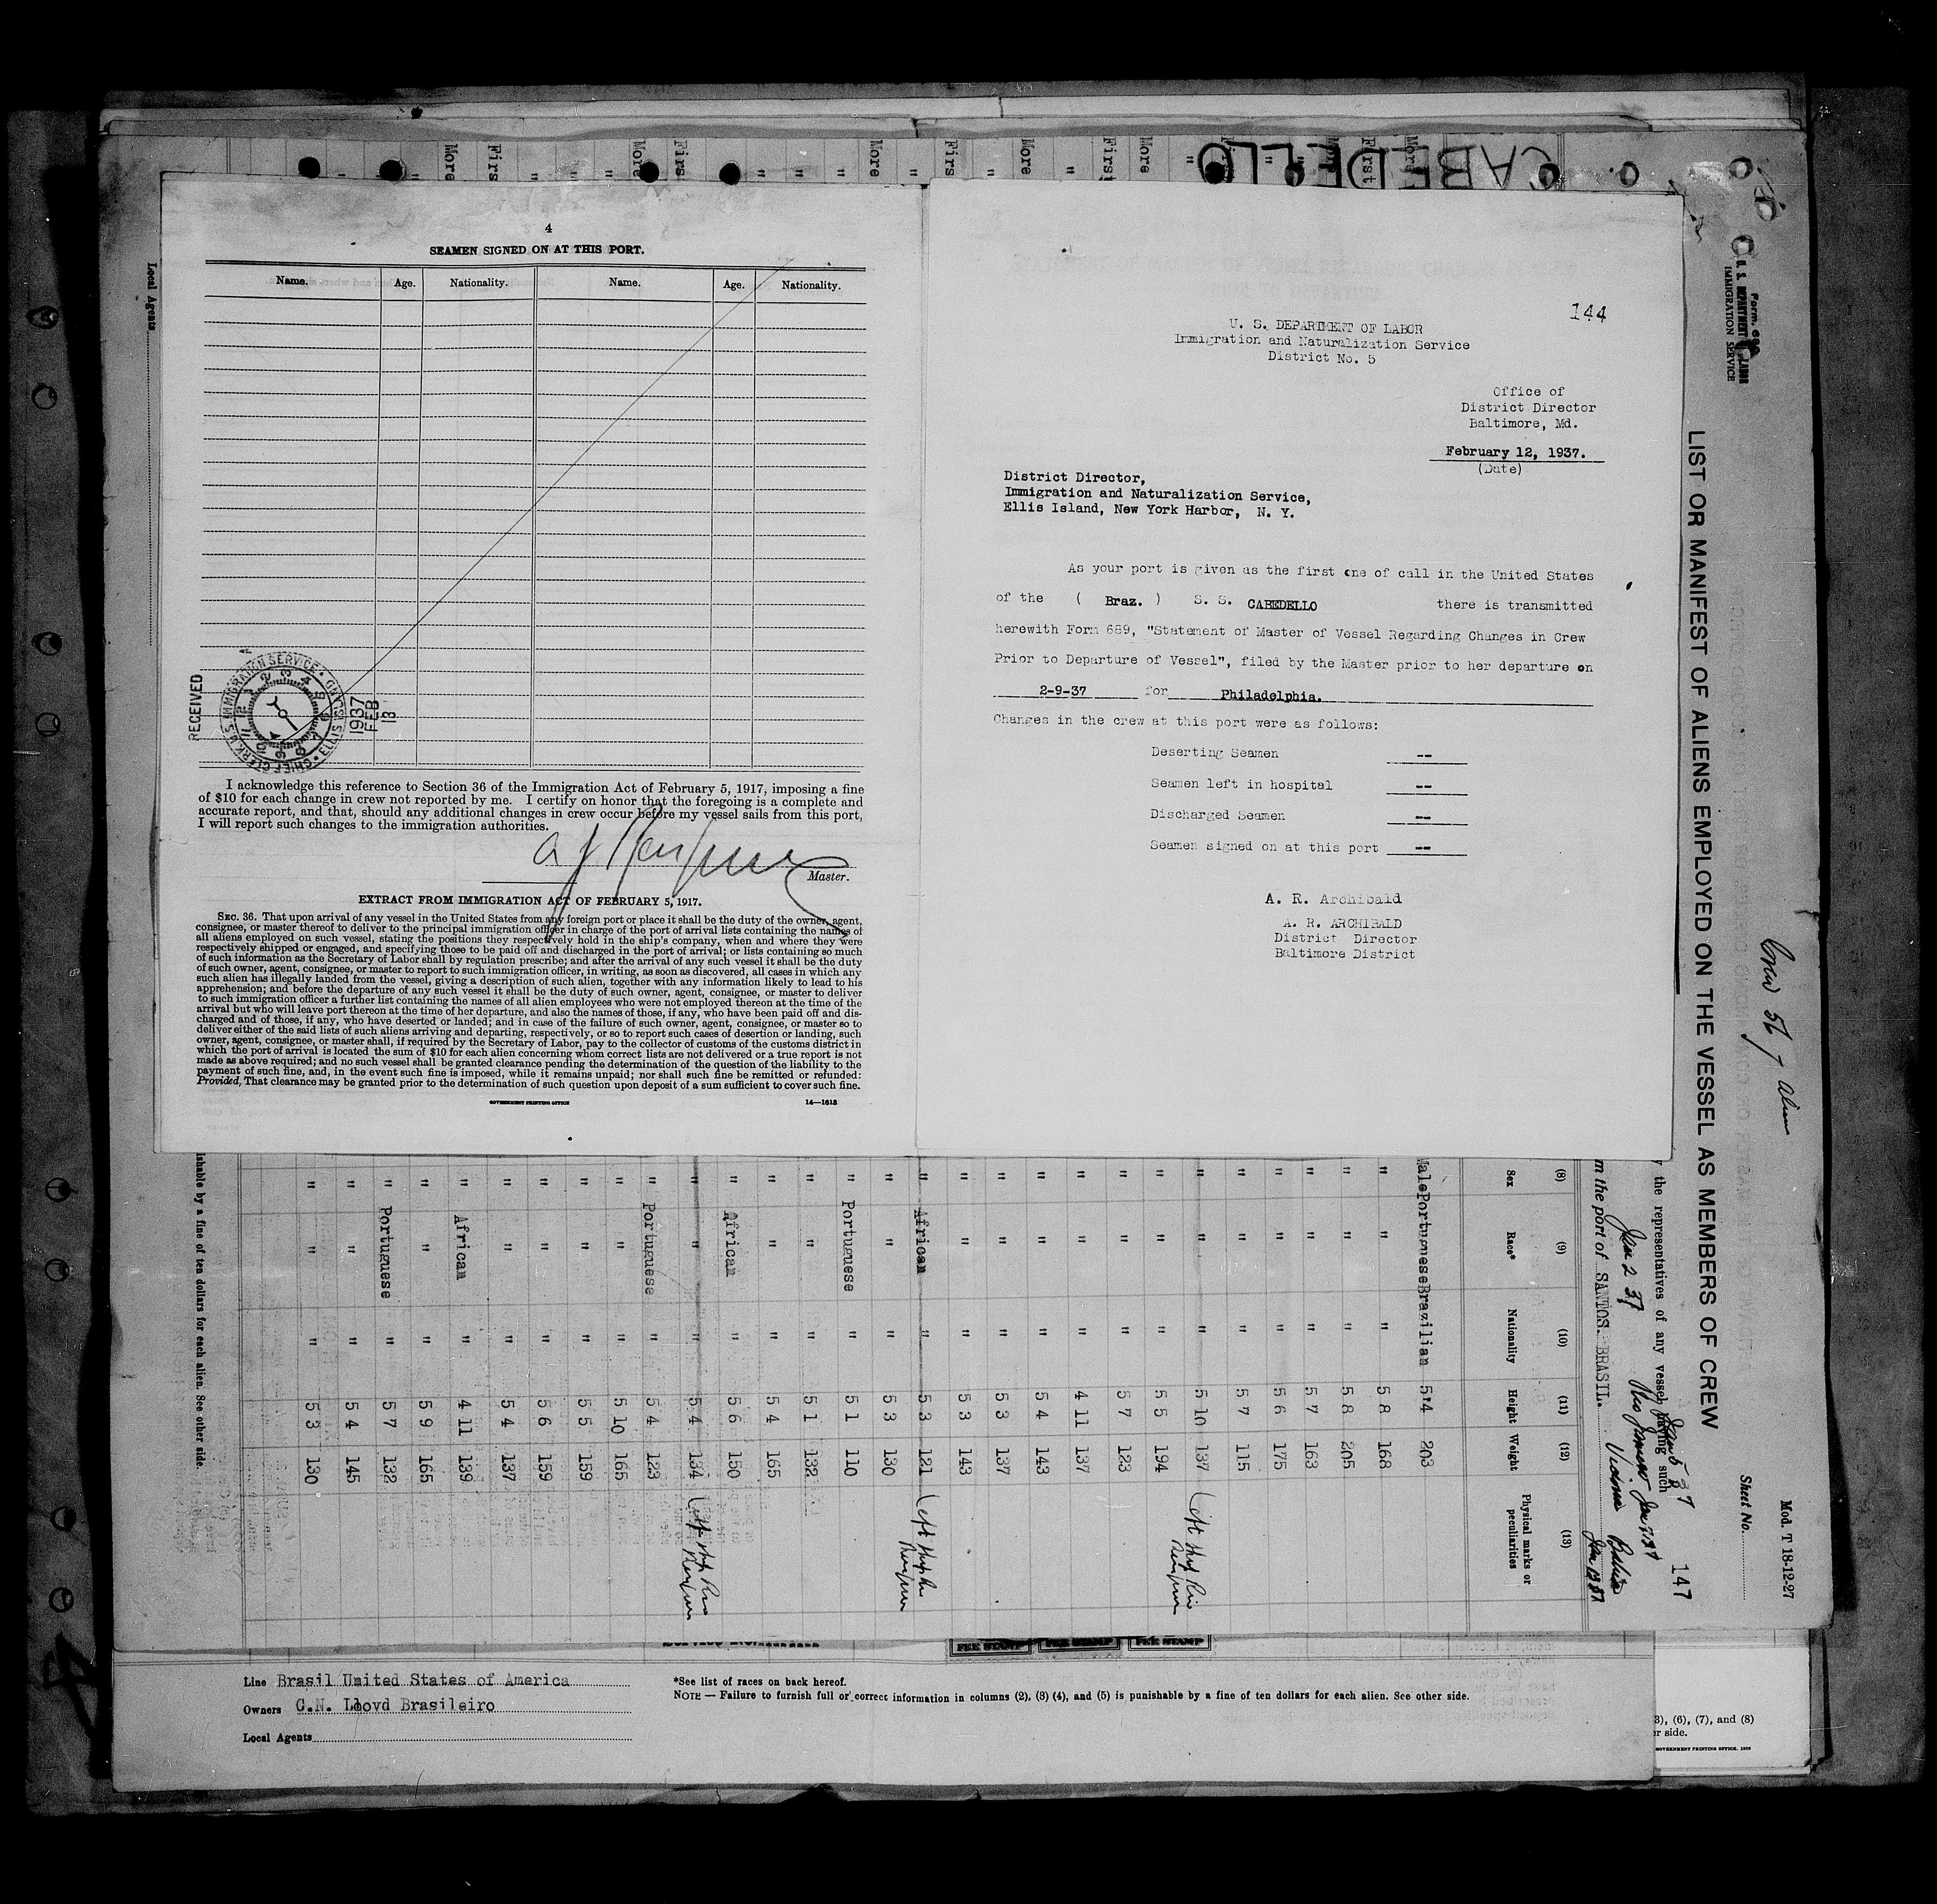 4
SEAMEN SIGNED ON AT THIS PORT.
Name. Age. Nationality. Name. Age. Nationality.
RECEIVED
CHIEF CLERK U.S. IMMIGRATION SERVICE
ELLIS ISLAND
1937
FEB
13
I acknowledge this reference to Section 36 of the Immigration Act of February 5, 1917, imposing a fine
of $10 for each change in crew not reported by me. I certify on honor that the foregoing is a complete and
accurate report, and that, should any additional changes in crew occur before my vessel sails from this port,
I will report such changes to the immigration authorities.
Master.
EXTRACT FROM IMMIGRATION ACT OF FEBRUARY 5, 1917.
SEC. 36. That upon arrival of any vessel in the United States from any foreign port or place it shall be the duty of the owner, agent,
consignee, or master thereof to deliver to the principal immigration officer in charge of the port of arrival lists containing the names of
all aliens employed on such vessel, stating the positions they respectively hold in the ship's company, when and where they were
respectively shipped or engaged, and specifying those to be paid off and discharged in the port of arrival; or lists containing so much
of such information as the Secretary of Labor shall by regulation prescribe; and after the arrival of any such vessel it shall be the duty
of such owner, agent, consignee, or master to report to such immigration officer, in writing, as soon as discovered, all cases in which any
such alien has illegally landed from the vessel, giving a description of such alien, together with any information likely to lead to his
apprehension; and before the departure of any such vessel it shall be the duty of such owner, agent, consignee, or master to deliver
to such immigration officer a further list containing the names of all alien employees who were not employed thereon at the time of the
arrival but who will leave port thereon at the time of her departure, and also the names of those, if any, who have been paid off and dis-
charged and of those, if any, who have deserted or landed; and in case of the failure of such owner, agent, consignee, or master so to
deliver either of the said lists of such aliens arriving and departing, respectively, or so to report such cases of desertion or landing, such
owner, agent, consignee, or master shall, if required by the Secretary of Labor, pay to the collector of customs of the customs district in
which the port of arrival is located the sum of $10 for each alien concerning whom correct lists are not delivered or a true report is not
made as above required; and no such vessel shall be granted clearance pending the determination of the question of the liability to the
payment of such fine, and, in the event such fine is imposed, while it remains unpaid; nor shall such fine be remitted or refunded:
Provided, That clearance may be granted prior to the determination of such question upon deposit of a sum sufficient to cover such fine.
GOVERNMENT PRINTING OFFICE 14—1618
144
U. S. DEPARTMENT OF LABOR
Immigration and Naturalization Service
District No. 5
Office of
District Director
Baltimore, Md.
February 12, 1937.
(Date)
District Director,
Immigration and Naturalization Service,
Ellis Island, New York Harbor, N. Y.
As your port is given as the first one of call in the United States
of the ( Braz. ) S. S. CABEDELLO there is transmitted
herewith Form 689, "Statement of Master of Vessel Regarding Changes in Crew
Prior to Departure of Vessel", filed by the Master prior to her departure on
2-9-37 for Philadelphia.
Changes in the crew at this port were as follows:
Deserting Seamen --
Seamen left in hospital --
Discharged Seamen --
Seamen signed on at this port --
A. R. Archibald
A. R. ARCHIBALD
District Director
Baltimore District
CABEDELLO
Local Agents
Form 680
U. S. DEPARTMENT OF LABOR
IMMIGRATION SERVICE
Mod. T 18-12-27
Sheet No.
147
LIST OR MANIFEST OF ALIENS EMPLOYED ON THE VESSEL AS MEMBERS OF CREW
Crew 56 7 alien
the representatives of any vessel having such
Jan 5 37
Jan 2 37 Rio Janeiro
m the port of SANTOS. BRASIL. Victoria Bahia
(8) (9) (10) (11) (12) (13)
Sex Race* Nationality Height Weight Physical marks or peculiarities
Male Portuguese Brazilian 5 4 203
" " " 5 8 168
" " " 5 8 205
" " " 5 7 163
" " " 5 6 175
" " " 5 7 115
" " " 5 10 137 Left ship Rio
" " " 5 5 194
" " " 5 7 123
" " " 4 11 137
" " " 5 4 143
" " " 5 3 137
" " " 5 3 143
" African " 5 3 121 Left ship Rio
" " " 5 3 130
" Portuguese " 5 1 110
" " " 5 1 132
" " " 5 4 165
" African " 5 6 150
" " " 5 4 134 Left ship Rio
" Portuguese " 5 4 123
" " " 5 10 165
" " " 5 5 159
" " " 5 6 159
" " " 5 4 137
" African " 4 11 139
" " " 5 9 165
" Portuguese " 5 7 132
" " " 5 4 145
" " " 5 3 130
ishable by a fine of ten dollars for each alien. See other side.
FEE STAMP FEE STAMP FEE STAMP
Line Brasil United States of America
Owners C.N. Lloyd Brasileiro
Local Agents
*See list of races on back hereof.
NOTE — Failure to furnish full or correct information in columns (2), (3) (4), and (5) is punishable by a fine of ten dollars for each alien. See other side.
3), (6), (7), and (8)
er side.
GOVERNMENT PRINTING OFFICE